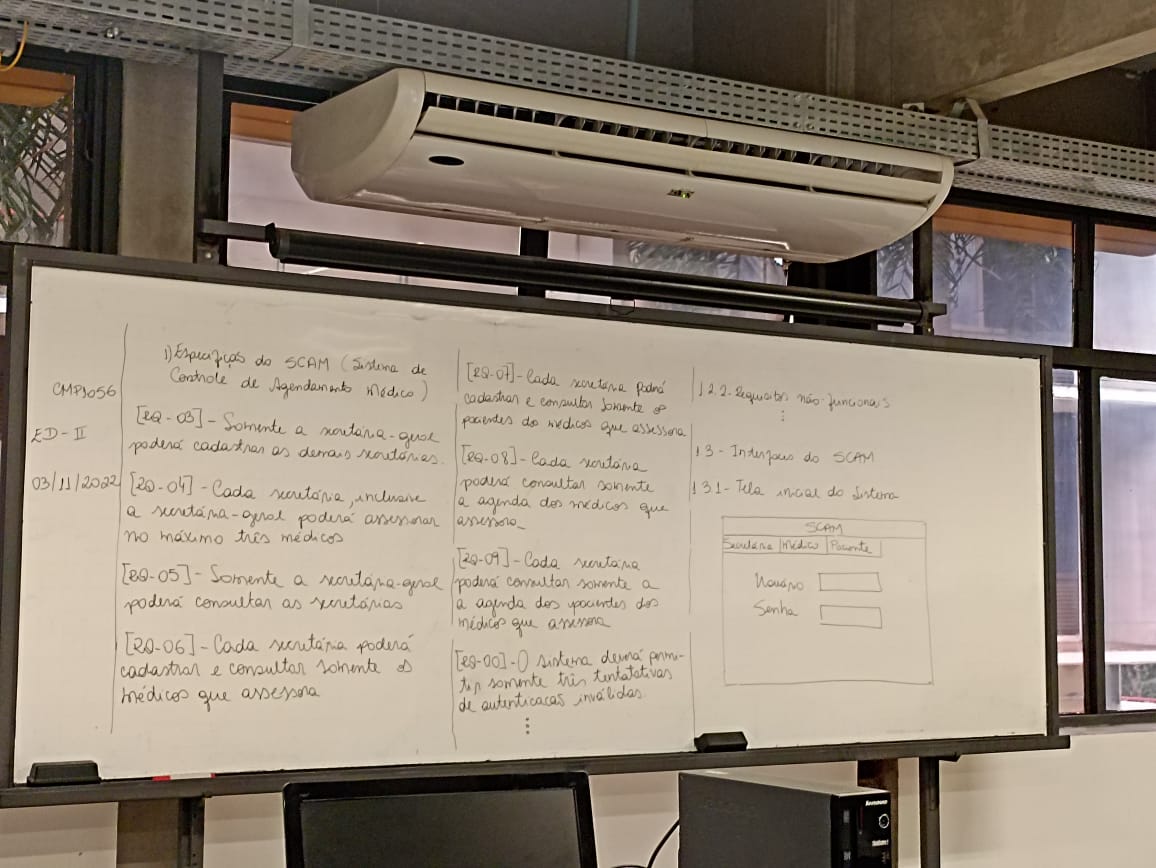 CMP1056
ED-II
03/11/2022
1) Especificação do SCAM (Sistema de
Controle de Agendamento Médico)
[RQ-03]-Somente a secretária-geral
poderá cadastrar as demais secretárias.
[RQ-04]-Cada secretária, inclusive
a secretária-geral poderá assessorar
no máximo três médicos
[RQ-05]-Somente a secretária-geral
poderá consultar as secretárias
[RQ-06]-Cada secretária poderá
cadastrar e consultar somente os
médicos que assessora
[RQ-07]-Cada secretária poderá
cadastrar e consultar somente os
pacientes do médicos que assessora
[RQ-08]-Cada secretária
poderá consultar somente
a agenda dos médicos que
assessora
[RQ-09]-Cada secretária
poderá consultar somente a
a agenda dos pacientes dos
médicos que assessora
[RQ-00]-O sistema deverá permi-
tir somente três tentatativas
de autenticacas inválidas.
1.2.2-Requisitos não-funcionais
1.3-Interfaces do SCAM
1.3.1-Tela inicial do Sistema
SCAM
Secretária Médico Paciente
Usuário
Senha
Lenovo